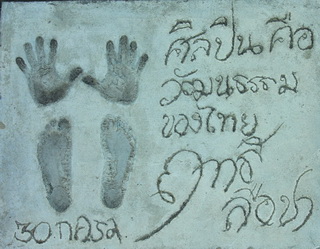 ศิลปินคือ
วัฒนธรรม
ของไทย
ฤทธิ์
ลือชา
30 กค